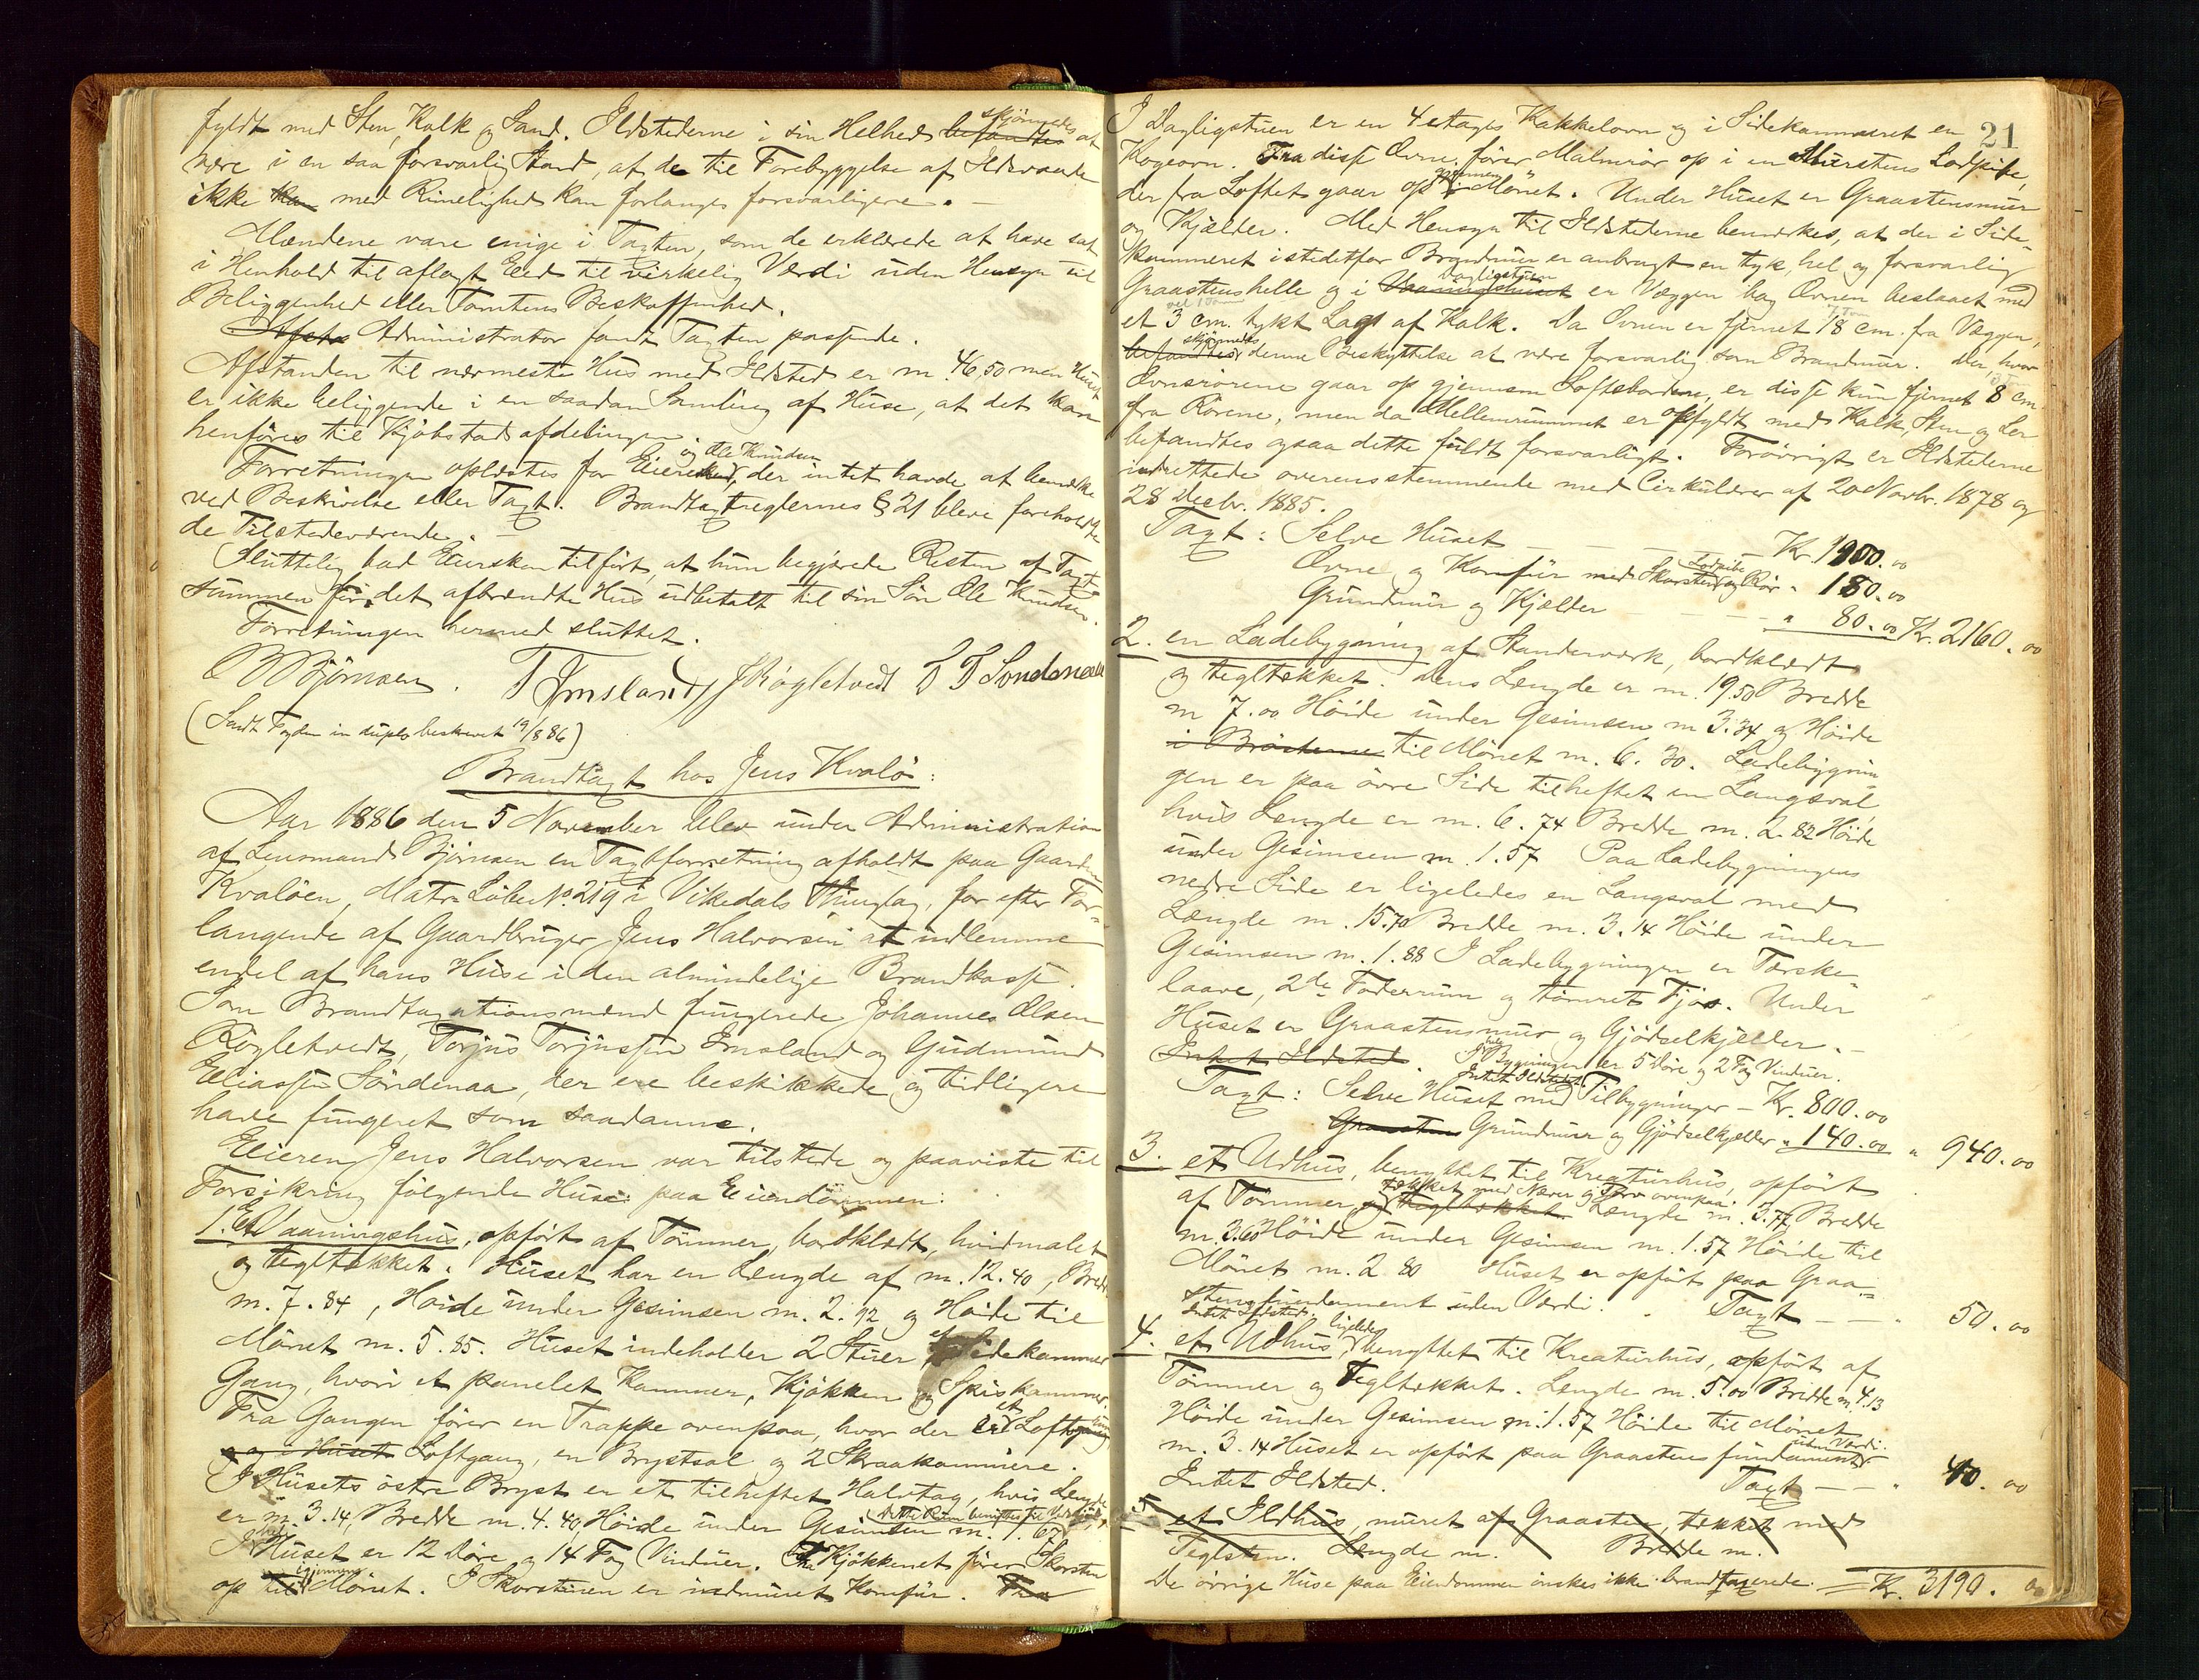 fyldt med Sten, Kalk og Sand. Ildstederne i sin Helhed befandtes skjønnedes at
være i en saa forsvarlig Stand, at de til Forebyggelse af Ildsvaade
ikke kan med Rimelighed kan forlanges forsvarligere. –
Mændene vare enige i Taxten, som de erklærede at have sat
i Henhold til aflagt Eed til virkelig Værdi uden Hensyn til
Beliggenhed eller Tomtens Beskaffenhed.
Administrator fandt Taxten passende.
Afstanden til nærmeste Hus med Ildsted er m. 46,50 men Huset
er ikke beliggende i en saadan Samling af Huse, at det kan
henføres til Kjøbstadsafdelingen.
Forretningen oplæstes for Eiersken og Ole Knudsen, der intet havde at bemærke
ved Beskrivelse eller Taxt. Brandtaxtreglernes § 21 bleve foreholdte
de Tilstedeværende. –
Sluttelig bad Eiersken tilført, at hun begjærede Resten af Taxt
summen for det afbrændte Hus udbetalt til sin Søn Ole Knudsen.
Forretningen hermed sluttet.
Bjørnsen. T Imsland J Røgletvedt G E Søndenaa
(Sendt Fogden in duplo beskrevet 19/8 86)
Brandtaxt hos Jens Kvalø:
Aar 1886 den 5 November blev under Administration
af Lensmand Bjørnsen en Taxtforretning afholdt paa Gaarden
Kvaløen, Matr. Løbe No. 219 i Vikedals Thinglag, for efter For-
langende af Gaardbruger Jens Halvorsen at indlemme
endel af hans Huse i den almindelige Brandkasse.
Som Brandtaxationsmænd fungerede Johannes Olsen
Røgletvedt, Torjus Torjussen Imsland og Gudmund
Eliassen Søndenaa, der ere beskikkede og tidligere
have fungeret som saadanne.
Eieren Jens Halvorsen var tilstede og paaviste til
Forsikring følgende Huse paa Eiendommen:
1. Et Vaaningshus, opført af Tømmer, bordklædt, hvidmalet
og tegltækket. Huset har en Længde af m. 12.40, Bredde
m. 7.84, Høide under Gesimsen m. 2.92 og Høide til
Mønet m. 5.85. Huset indeholder 2 Stuer et Sidekammer
Gang, hvori et panelet Kammer, Kjøkken og Spiskammer.
Fra Gangen fører en Trappe ovenpaa, hvor der er et Loftsrum
og i Huset Loftgang, en Brystsal og 2 Skraakammere.
I Husets østre Bryst er et tilheftet Halvtag, hvis Længde
er m. 3.14, Bredde m. 4.40 Høide under Gesimsen m. 1.67. Dette Rum benyttes til Vedskjul.
I hele Huset er 12 Døre og 14 Fag Vinduer. Fra Kjøkkenet fører Skorsten
op til igjennem Mønet. I Skorstenen er indmuret Komfur. Fra
21
I Dagligstuen er en 4 etages Kakkelovn og i Sidekammeret en
Kogeovn. Fra disse Ovne fører Malmrør op i en Murstens Lodpibe,
der fra Loftet gaar op i gjennem Mønet. Under Huset er Graastensmur
og Kjælder. Med Hensyn til Ildstederne bemærkes, at der i Side-
kammeret istedetfor Brandmur er anbragt en tyk, hel og forsvarlig
Graastenshelle og i Vaaningshuset Dagligstuen er Væggen bag Ovnen beslaaet med
et 3 cm. tykt Lag af Kalk. Da Ovnen er fjernet 18 cm. fra Væggen,
befandtes skjønnedes denne Beskyttelse at være forsvarlig som Brandmur. Der, hvor
Ovnsrørene gaar op gjennem Loftsbordene, er disse kun fjernet 8 cm
fra Rørene, men da Mellemrummet er opfyldt med Kalk, Sten og Ler
befandtes ogsaa dette fuldt forsvarligt. Forøvrigt er Ildstederne
indrettede overensstemmende med Cirkulærer af 20 Novbr. 1878 og
28 Decbr. 1885.
Taxt: Selve Huset – – – Kr. 1900.00
Ovne og Komfur med Skorsten Lodpibe og Rør " 180.00
Grundmur og Kjælder – – " 80.00 Kr. 2160.00
2. en Ladebygning af Standerværk, bordklædt
og tegltækket. Dens Længde er m. 19.50 Bredde
m 7.00 Høide under Gesimsen m 3.34 og Høide
i Brøsterne til Mønet m. 6.30. Ladebygnin-
gen er paa øvre Side tilheftet en Langsval,
hvis Længde er m. 6.74 Bredde m. 2.82 Høide
under Gesimsen m. 1.57 Paa Ladebygningens
nedre Side er ligeledes en Langsval med
Længde m. 15.70 Bredde m. 3.14 Høide under
Gesimsen m. 1.88 I Ladebygningen er Tærske
laave, 2de Foderrum og tømret Fjøs. Under
Huset er Graastensmur og Gjødselkjælder. –
Intet Ildsted. I hele Bygningen er 5 Døre og 2 Fag Vinduer.
Intet Ildsted.
Taxt: Selve Huset med Tilbygninger – Kr. 800.00
Graasten Grundmur og Gjødselkjælder " 140.00 " 940.00
3. et Udhus, benyttet til Kreaturhus, opført
af Tømmer og tegltækket tækket med Næver og Torv ovenpaa. Længde m. 3.77 Bredde
m. 3.60 Høide under Gesimsen m. 1.57 Høide til
Mønet m. 2.80 Huset er opført paa Graa-
stensfundament uden Værdi. Taxt – – " 50.00
Intet Ildsted.
4. et Udhus, ligeledes benyttet til Kreaturhus, opført af
Tømmer og Tegltækket. Længde m. 5.00 Bredde m. 4.13
Høide under Gesimsen m. 1.57 Høide til Mønet
m. 3.14 Huset er opført paa Graastensfundament uden Værdi.
Intet Ildsted. Taxt – – " 40.00
5. et Ildhus, muret af Graasten, tækket med
Teglsten. Længde m. Bredde m.
De øvrige Huse paa Eiendommen ønskes ikke brandtaxerede. = Kr. 3190.00